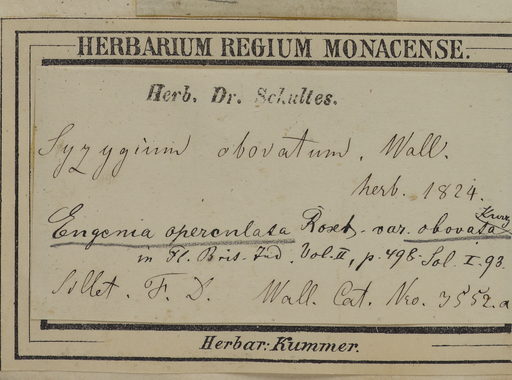 HERBARIUM REGIUM MONACENSE.
Herb. Dr. Schultes.
Syzygium obovatum. Wall.
herb. 1824.
Kurz
Eugenia operculata Roxb. var. obovata
in Fl. Bris. Ind. Vol. II, p. 498. Sol. I. 93.
Sillet. F. D. Wall. Cat. Nro. 3552. a
Herbar: Kummer.